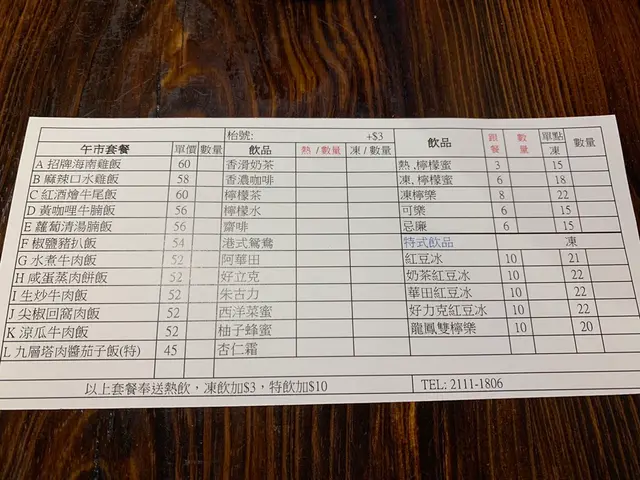 枱號: +$3
午市套餐 單價 數量 飲品 熱 / 數量 凍 / 數量 飲品 跟餐 數量 單點 凍 數量
A 招牌海南雞飯 60 香滑奶茶 熱,檸檬蜜 3 15
B 麻辣口水雞飯 58 香濃咖啡 凍,檸檬蜜 6 18
C 紅酒燴牛尾飯 60 檸檬茶 凍檸樂 8 22
D 黃咖哩牛腩飯 56 檸檬水 可樂 6 15
E 蘿蔔清湯腩飯 56 齋啡 忌廉 6 15
F 椒鹽豬扒飯 54 港式鴛鴦 特式飲品 凍
G 水煮牛肉飯 52 阿華田 紅豆冰 10 21
H 咸蛋蒸肉餅飯 52 好立克 奶茶紅豆冰 10 22
I 生炒牛肉飯 52 朱古力 華田紅豆冰 10 22
J 尖椒回窩肉飯 52 西洋菜蜜 好力克紅豆冰 10 22
K 涼瓜牛肉飯 52 柚子蜂蜜 龍鳳雙檸樂 10 20
L 九層塔肉醬茄子飯(特) 45 杏仁霜
以上套餐奉送熱飲，凍飲加$3，特飲加$10 TEL: 2111-1806